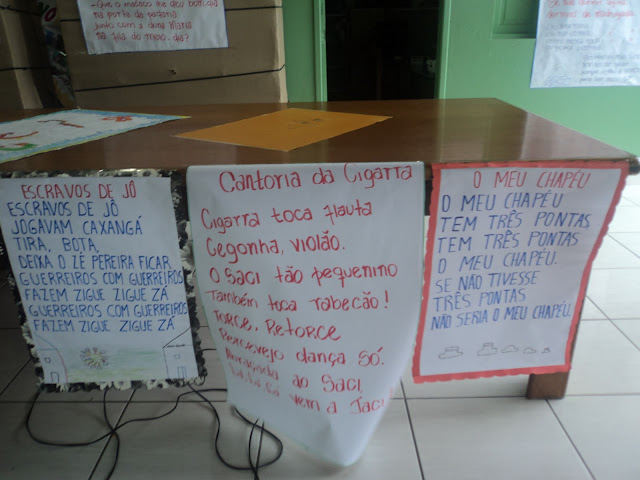 - Que o macaco me deu bom dia
na porta da padaria
junto com a dona Maria
na fila do meio-dia?
ESCRAVOS DE JÔ
ESCRAVOS DE JÔ
JOGAVAM CAXANGÁ
TIRA, BOTA,
DEIXA O ZÉ PEREIRA FICAR
GUERREIROS COM GUERREIROS
FAZEM ZIGUE ZIGUE ZÁ
GUERREIROS COM GUERREIROS
FAZEM ZIGUE ZIGUE ZÁ
Cantoria da Cigarra
Cigarra toca flauta
Cegonha, violão.
O Saci tão pequenino
Também toca rabecão!
Torce, Retorce
Percevejo dança só.
ao Saci
vem a Jaci
O MEU CHAPÉU
O MEU CHAPÉU
TEM TRÊS PONTAS
TEM TRÊS PONTAS
O MEU CHAPÉU.
SE NÃO TIVESSE
TRÊS PONTAS
NÃO SERIA O MEU CHAPÉU.